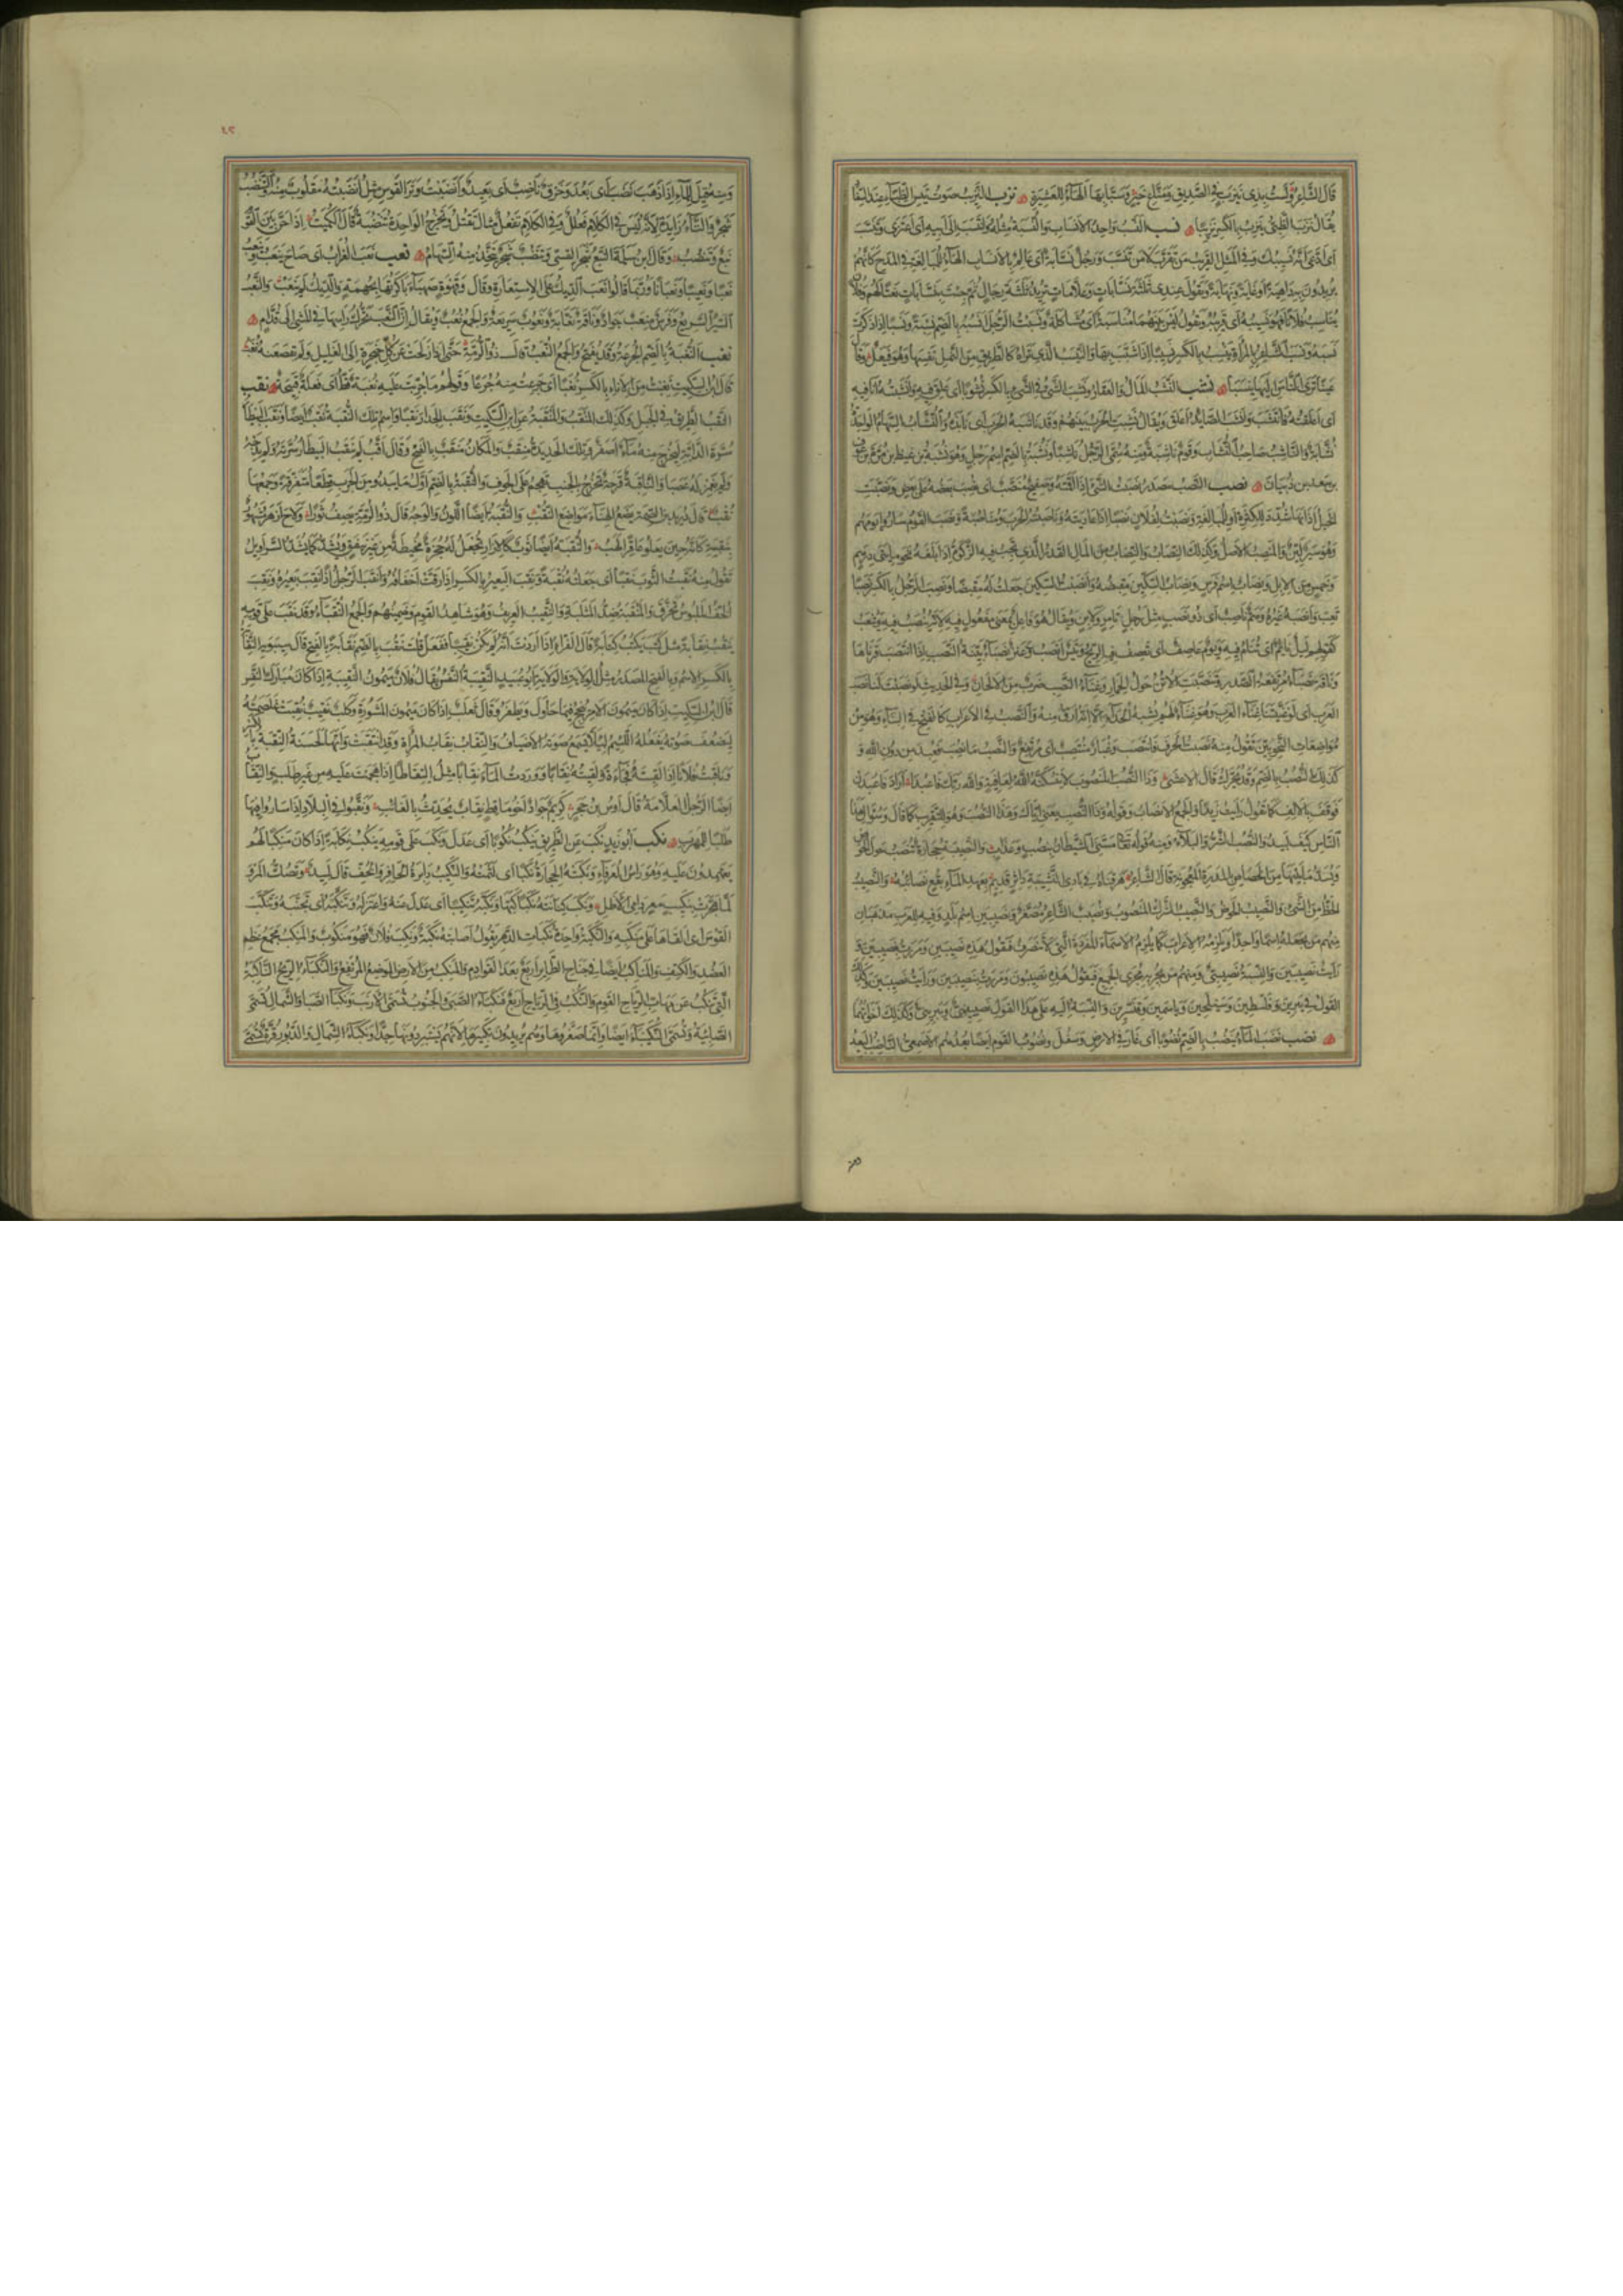 قال الشاعر ولست بذي نيرب في الصديق ومناع خير وسبابها الهاء للعشيرة نزب النزيب صوت تيس الظباء عند
يقال نزب الظبي ينزب بالكسر نزيبا نسب النسب واحد الانساب والنسبة مثله وانتسب الى ابيه اي اعتزى وتنسب
اي ادعى انه نسيبك وفي المثل القريب من تقرب لا من تنسب ورجل نسابة اي عالم بالانساب الهاء للمبالغة في المدح كانهم
يريدون به داهية او غاية ونهاية وتقول عندي ثلثة نسابات وعلامات تريد ثلثة رجال ثم جئت بنسابات نعتا لهم وفلان
يناسب فلانا فهو نسيبه اي قريبه وتقول ليس بينهما مناسبة اي مشاكلة ونسبت الرجل انسبه بالضم نسبة ونسبا اذا ذكرت
نسبه ونسب الشاعر بالمرأة ينسب بالكسر نسيبا اذا شبب بها والنيسب الذي تراه كالطريق من النمل نفسها وهو فيعل وقال
عينا ترى الناس اليها نيسبا نشب النشب المال والعقار ونشب الشيء في الشيء بالكسر نشوبا اي علق فيه وانشبته انا فيه
اي اعلقته فانتشب وانشب الصائد اعلق ويقال نشبت الحرب بينهم وقد ناشبه الحرب اي نابذه والنشاب السهام الواحدة
نشابة والناشب صاحب النشاب وقوم ناشبة ومنه سمي الرجل ناشبا ونشبة بالضم اسم رجل وهو نشبة بن غيظ بن مرة بن عوف
بن سعد بن ذبيان نصب النصب مصدر نصبت الشيء اذا اقمته وصفيح منصب اي نصب بعضه على بعض ونصبت
الخيل اذانها شدد للكثرة او للمبالغة ونصبت لفلان نصبا اذا عاديته وناصبته الحرب مناصبة ونصب القوم ساروا يومهم
وهو سير لين والمنصب الاصل وكذلك النصاب والنصاب من المال القدر الذي تجب فيه الزكوة اذا بلغه نحو مايتي درهم
وخمس من الابل ونصاب اسم فرس ونصاب السكين مقبضه وانصبت السكين جعلت له مقبضا ونصب الرجل بالكسر نصبا
تعب وانصبه غيره وهم ناصب اي ذو نصب مثل رجل تامر ولابن ويقال هو فاعل بمعنى مفعول فيه لانه ينصب فيه ويتعب
كقولهم ليل نائم اي ينام فيه ويوم عاصف اي تعصف فيه الريح وتيس انصب وعنز نصباء بينة النصب اذا انتصب قرناها
وناقة نصباء مرتفعة الصدر وتنصبت الاتن حول الحمار وغناء النصب ضرب من الالحان وفي الحديث لو نصبت لنا نصب
العرب اي لو غنيتنا غناء العرب وهو غناء لهم يشبه الحداء الا انه ارق منه والنصب في الاعراب كالفتح في البناء وهو من
مواضعات النحويين تقول منه نصبت الحرف فانتصب وغبار منتصب اي مرتفع والنصب ما نصب فعبد من دون الله و
كذلك النصب بالضم وقد يحرك قال الاعشى وذا النصب المنصوب لا تنسكنه لعافية والله ربك فاعبدا اراد فاعبدن
فوقف بالالف كما تقول رايت زيدا والجمع الانصاب وقوله وذا النصب يعني اياك وهذا النصب وهو للتقريب كما قال وسؤال هذا
الناس كيف لبيد والنصب الشر والبلاء ومنه قوله تعالى مسني الشيطان بنصب وعذاب والنصيبة حجارة تنصب حول الحوض
ويسد ما بينها من الخصاص بالمدرة المعجونة قال الشاعر هرقناه في بادي النشيئة داثر قديم بعهد الماء بقع نصائبه والنصيب
الحظ من الشيء والنصيب الحوض والنصيب الشرك المنصوب ونصيب الشاعر مصغر ونصيبين اسم بلد وفيه للعرب مذهبان
منهم من يجعله اسما واحدا ويلزمه الاعراب كما يلزم الاسماء المفردة التي لا تنصرف فيقول هذه نصيبين ومررت بنصيبين و
رايت نصيبين والنسبة نصيبيني ومنهم من يجريه مجرى الجمع فيقول هذه نصيبون ومررت بنصيبين ورايت نصيبين وكذلك
القول في يبرين وفلسطين وسيلحين وياسمين وقنسرين والنسبة اليه على هذا القول نصيبي ويبري وكذلك اخواتها
نضب نضب الماء ينضب بالضم نضوبا اي غار في الارض وسفل ونضوب القوم ايضا بعدهم الاصمعي الناضب البعيد
ومنه قيل للماء اذا ذهب نضب اي بعد وخرق ناضب اي بعيد وانضبت وتر القوس مثل انبضته مقلوب منه والتنضب
شجر والتاء زايدة لانه ليس في الكلام فعلل وفي الكلام تفعل مثل تقتل وتخرج الواحدة تنضبة قال الكميت اذا حن بين القوم
نبع وتنضب وقال ابن سلمة النبع شجر القسي وتنضب شجر تتخذ منه السهام نعب نعب الغراب اي صاح ينعب وينعب
نعبا ونعيبا ونعبانا وربما قالوا نعب الديك على الاستعارة وقال وقهوة صهباء باكرتها بجهمة والديك لم ينعب والنعب
السير السريع وفرس منعب جواد وناقة نعابة ونعوب سريعة والجمع نعب ويقال ان النعب تحرك راسها في المشي الى قدام
نغب النغبة بالضم الجرعة وقد يفتح والجمع النغب قال ذو الرمة حتى اذا زلجت عن كل حنجرة الى الغليل ولم يقصعنه نغب
قال ابن السكيت نغبت من الاناء بالكسر نغبا اي جرعت منه جرعا وقولهم ما جربت عليه نغبة قط اي فعلة قبيحة نقب
النقب الطريق في الجبل وكذلك المنقب والمنقبة عن ابن السكيت ونقب الجدار نقبا واسم تلك النقبة نقب ايضا ونقب البيطار
سرة الدابة ليخرج منه ماء اصفر وتلك الحديدة منقب والمكان منقب بالفتح وقال اقب لم ينقب البيطار سرته ولم يدجه
ولم يغمز له عصبا والناقبة قرحة تخرج بالجنب تهجم على الجوف والنقبة بالضم اول ما يبدو من الجرب قطعا متفرقة وجمعها
نقب قال دريد بن الصمة يضع الهناء مواضع النقب والنقبة ايضا اللون والوجه قال ذو الرمة يصف ثورا ولاح ازهر مشهور
بنقبته كانه حين يعلو عاقرا لهب والنقبة ايضا ثوب كالازار تجعل له حجزة مخيطة من غير نيفق ويشد كما يشد السراويل
تقول منه نقبت الثوب نقبا اي جعلته نقبة ونقب البعير بالكسر اذا رقت اخفافه وانقب الرجل اذا نقب بعيره ونقب
الخف الملبوس تخرق والمنقبة ضد المثلبة والنقيب العريف وهو شاهد القوم وضمينهم والجمع النقباء وقد نقب على قومه
ينقب نقابة مثل كتب يكتب كتابة قال الفراء اذا اردت انه لم يكن نقيبا ففعل قلت نقب بالضم نقابة بالفتح قال سيبويه النقابة
بالكسر الاسم وبالفتح المصدر مثل الولاية والولاية ابو عبيد النقيبة النفس يقال فلان ميمون النقيبة اذا كان مبارك النفس
قال ابن السكيت اذا كان ميمون الامر ينجح فيما حاول ويظفر وقال ثعلب اذا كان ميمون المشورة وكلب نقيب نقبت غلصمته
ليضعف صوته يفعله اللئيم لئلا يسمع صوته الاضياف والنقاب نقاب المرأة وقد انتقبت وانها لحسنة النقبة بالكسر
وناقبت فلانا اذا لقيته فجاءة ولقيته نقابا ووردت الماء نقابا مثل التقاطا اذا هجمت عليه من غير طلب والنقاب
ايضا الرجل العلامة قال اوس بن حجر كريم جواد اخو ماقط نقاب يحدث بالغائب ونقبوا في البلاد اذا ساروا فيها
طلبا للمهرب نكب ابو زيد نكب عن الطريق ينكب نكوبا اي عدل ونكب على قومه ينكب نكابة اذا كان منكبا لهم
يعتمدون عليه وهو راس العرفاء ونكبته الحجارة نكبا اي لثمته والنكيب دائرة الحافر والخف قال لبيد وتصك المرو
لما هجرت بنكيب معر دامي الاظل ونكب كنانته نكبا كبها ونكبه تنكيبا اي عدل عنه واعتزله وتنكبه اي تجنبه وتنكب
القوس اي القاها على منكبه والنكبة واحدة نكبات الدهر يقول اصابته نكبة ونكب فلان فهو منكوب والمنكب مجمع عظم
العضد والكتف والمناكب ايضا في جناح الطائر اربع بعد القوادم والمنكب من الارض الموضع المرتفع والنكباء الريح الناكبة
التي تنكب عن مهاب الرياح القوم والنكب في الرياح اربع فنكباء الصبا والجنوب تسمى الازيب ونكباء الصبا والشمال تسمى
الصابية وتسمى النكيباء ايضا وانما صغروها وهم يريدون تكبيرها لانهم يستبردونها جدا ونكباء الشمال والدبور قرة تسمى